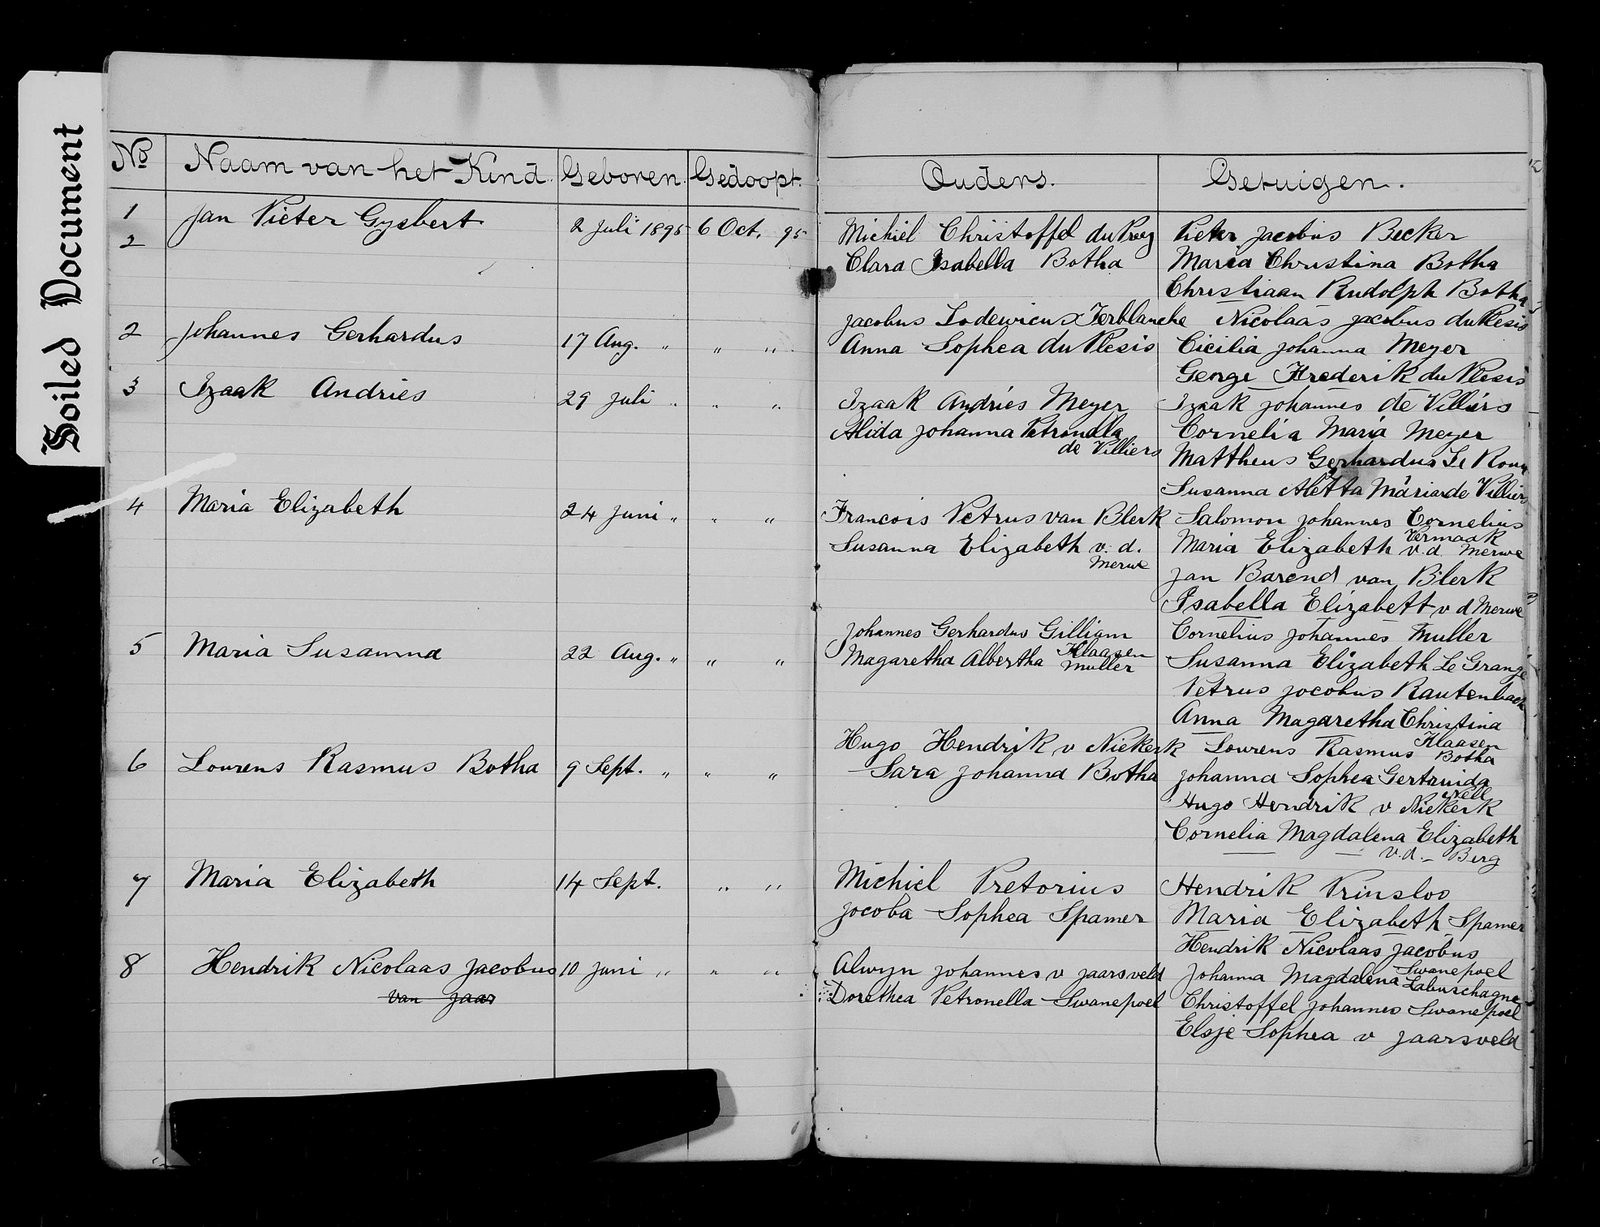 Soiled Document
No Naam van het Kind. Geboren. Gedoopt. Ouders. Getuigen.
1 Jan Pieter Gysbert 2 Juli 1895 6 Oct. 95 Michiel Christoffel du Preez Pieter Jacobus Becker
2 Clara Isabella Botha Maria Christina Botha
Christiaan Rudolph Botha
Jacobus Lodewicus Terblanche Nicolaas Jacobus du Plesis
2 Johannes Gerhardus 17 Aug. " " " Anna Sophea du Plesis Cicilia Johanna Meyer
George Frederik du Plesis
3 Izaak Andries 29 Juli " " " Izaak Andries Meyer Izaak Johannes de Villiers
Alida Johanna Petronella Cornelia Maria Meyer
de Villiers Mattheus Gerhardus Le Roux
Susanna Aletta Maria de Villiers
4 Maria Elizabeth 24 Juni " " " Francois Petrus van Blerk Salomon Johannes Cornelius
Vermaak
Susanna Elizabeth v. d. Maria Elizabeth v. d. Merwe
Merwe
Jan Barend van Blerk
Isabella Elizabett v d Merwe
Johannes Gerhardus Gilliam Cornelius Johannes Muller
Klaasen
5 Maria Susanna 22 Aug. " " " Magaretha Albertha Muller Susanna Elizabeth Le Grange
Petrus Jocobus Rautenbach
Anna Magaretha Christina
Klaasen
Hugo Hendrik v Niekerk Lourens Rasmus Botha
6 Lourens Rasmus Botha 9 Sept. " " " Sara Johanna Botha Johanna Sophea Gertruida
Nell
Hugo Hendrik v Niekerk
Cornelia Magdalena Elizabeth
v.d. Berg
7 Maria Elizabeth 14 Sept. " " Michiel Pretorius Hendrik Prinsloo
Jocoba Sophea Spamer Maria Elizabeth Spamer
Hendrik Nicolaas Jacobus
Swanepoel
8 Hendrik Nicolaas Jacobus 10 Juni " " " Alwyn Johannes v Jaarsveld Johanna Magdalena Labuschagne
van Jaar Dorethea Petronella Swanepoel Christoffel Johannes Swanepoel
Elsje Sophea v Jaarsveld